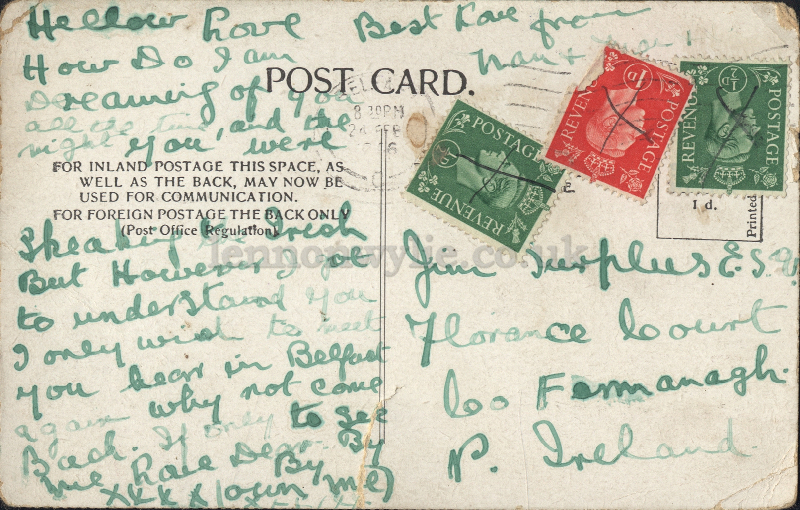 Hellow Love Best Love from
How Do I am
Dreaming of you
all the time, and the
night you, were
POST CARD.
8 30PM
24 FEB
FOR INLAND POSTAGE THIS SPACE, AS
WELL AS THE BACK, MAY NOW BE
USED FOR COMMUNICATION.
FOR FOREIGN POSTAGE THE BACK ONLY
(Post Office Regulation)
Speaking Irish
But However I got
to understand you
I only wish to meet
you hear in Belfast
again why not come
Back. If only to see
me Love Dear. By
By
XXXX (own me)
POSTAGE
REVENUE
½D
REVENUE
POSTAGE
1D
REVENUE
POSTAGE
½D
1 d.
Printed
Jim Surplus E.S.Q.
Florance Court
Co Fermanagh.
N. Ireland
lennonwylie.co.uk